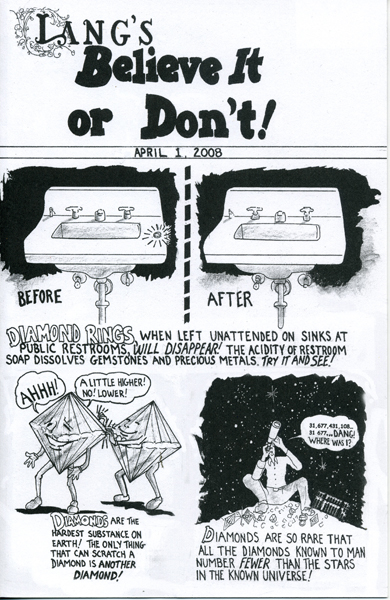 LANG'S
Believe It
or Don't!
APRIL 1, 2008
BEFORE
AFTER
DIAMOND RINGS, WHEN LEFT UNATTENDED ON SINKS AT
PUBLIC RESTROOMS, WILL DISAPPEAR! THE ACIDITY OF RESTROOM
SOAP DISSOLVES GEMSTONES AND PRECIOUS METALS. TRY IT AND SEE!
AHHH!
A LITTLE HIGHER!
NO! LOWER!
DIAMONDS ARE THE
HARDEST SUBSTANCE ON
EARTH! THE ONLY THING
THAT CAN SCRATCH A
DIAMOND IS ANOTHER
DIAMOND!
31,677,431,108...
31 677...DANG!
WHERE WAS I?
DIAMONDS ARE SO RARE THAT
ALL THE DIAMONDS KNOWN TO MAN
NUMBER FEWER THAN THE STARS
IN THE KNOWN UNIVERSE!